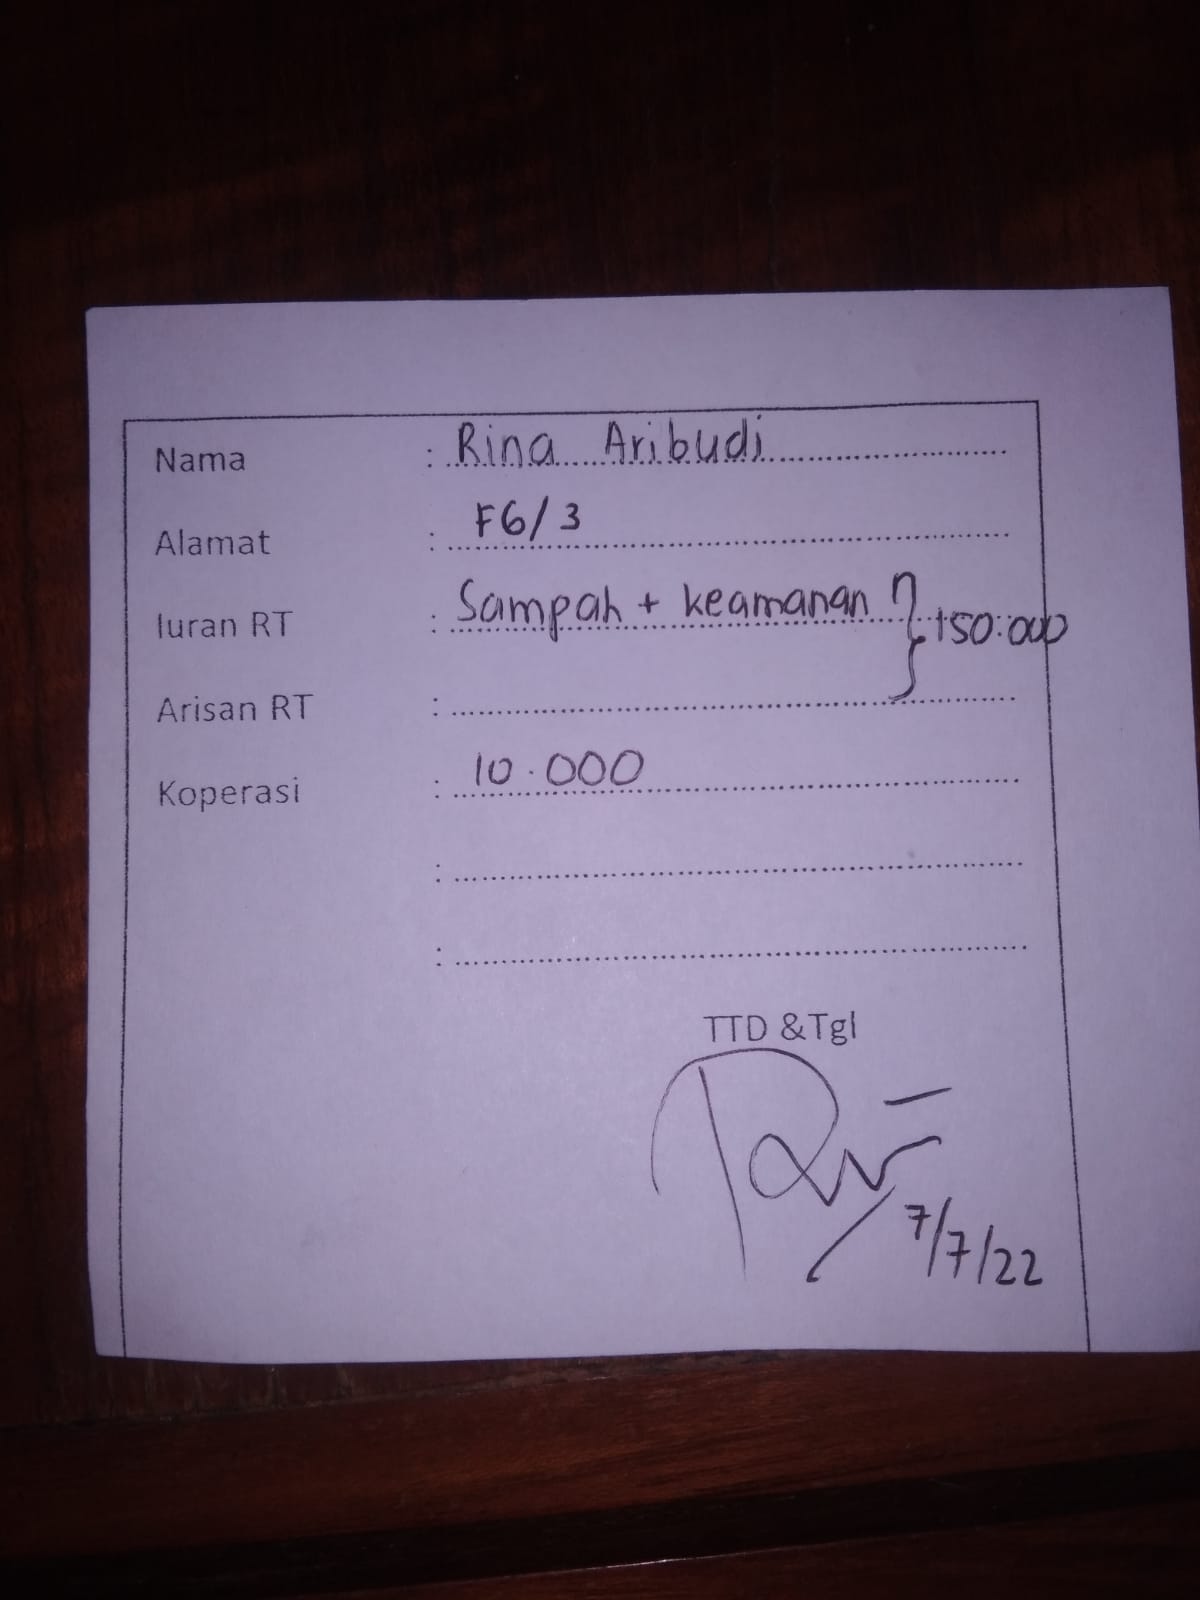 Nama : Rina Aribudi
Alamat : F6/3
Iuran RT : Sampah + keamanan } 150.000
Arisan RT :
Koperasi : 10.000
:
:
TTD &Tgl
7/7/22